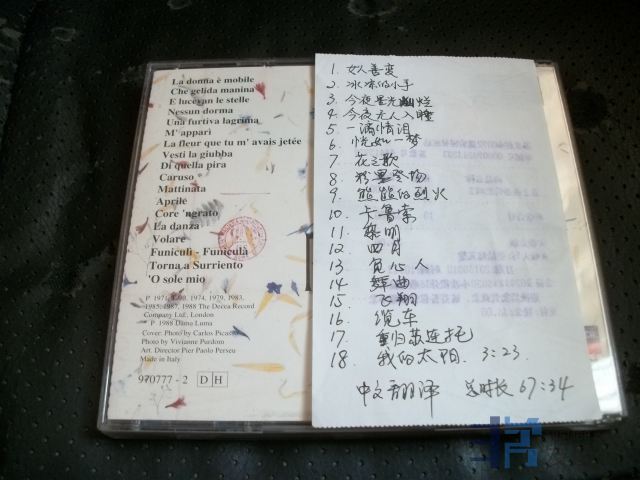 La donna è mobile
Che gelida manina
E lucevan le stelle
Nessun dorma
Una furtiva lagrima
M' appari
La fleur que tu m' avais jetée
Vesti la giubba
Di quella pira
Caruso
Mattinata
Aprile
Core 'ngrato
La danza
Volare
Funiculì - Funiculà
Torna a Surriento
'O sole mio
1985, 1987, 1988 The Decca Record
Company Ltd., London
P 1988 Dano Luma
Cover: Photo by Carlos Picasso
Photo by Vivianne Purdom
Art. Director Pier Paolo Perseu
Made in Italy
970777 - 2 D H
1. 女人善变
2. 冰凉的小手
3. 今夜星光灿烂
4. 今夜无人入睡
5. 一滴情泪
6. 恍如一梦
7. 花之歌
8. 粉墨登场
9. 熊熊的烈火
10. 卡鲁索
11. 黎明
12. 四月
13. 负心人
14. 舞曲
15. 飞翔
16. 缆车
17. 重归苏连托
18. 我的太阳. 3:23.
中文翻译 总时长 67:34